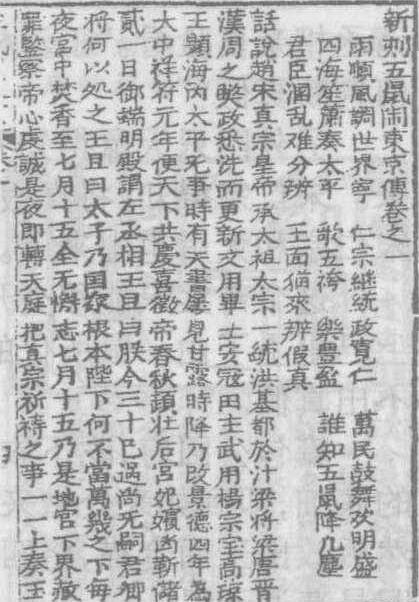 新刻五鼠閙東京傳卷之一
雨順風調世界寧　仁宗継統政寬仁　萬民鼓舞效明盛
四海笙簫奏太平　歌五袴　樂豊盈　誰知五鼠降凡塵
君臣溷乱难分辨　玉面猫來辨假真
話說趙宋真宗皇帝承太祖太宗一統洪基都於汴梁將梁唐晋
漢周之獘政悉洗而更新文用畢士安冦田王武用楊宗室高瓊
王顕海內太平无事時有天書屢見甘露時降乃改景德四年為
大中祥符元年使天下共慶喜徵帝春秋頗壮后宮妃嬪尚靳儲
貳一日御端明殿謂左丞相王旦曰朕今三十已過尚无嗣君卿
将何以処之王旦曰太子乃国家根本陛下何不當萬幾之下每
夜宮中焚香至七月十五全无懈志七月十五乃是地官下界赦
罪鑒察帝心虔誠是夜即轉天庭把真宗祈禱之事一一上奏玉